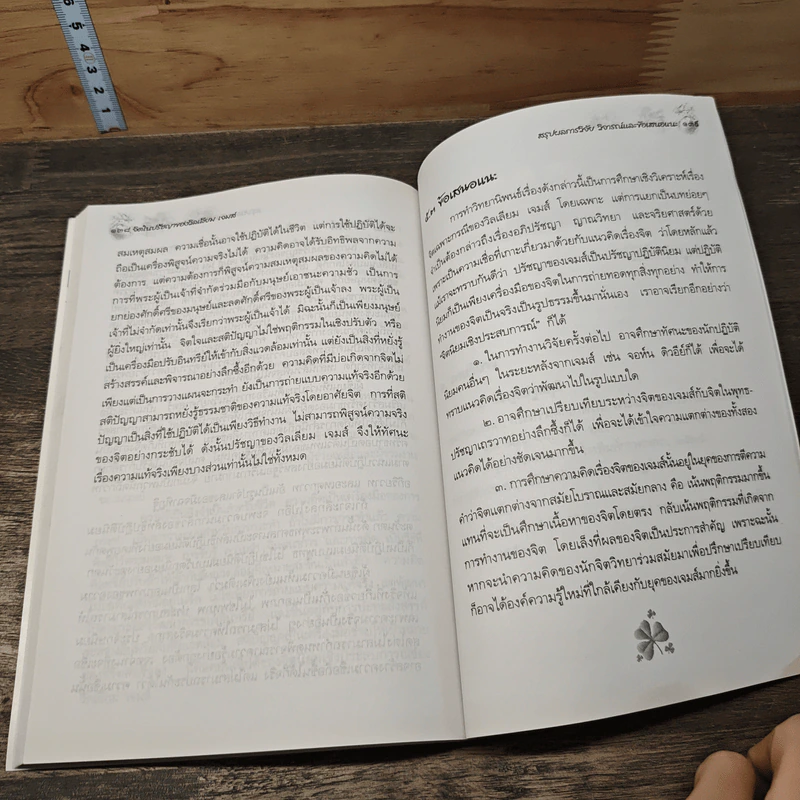 5
5
4
3
2
1
๑๓๘ จิตในปรัชญาของวิลเลียม เจมส์
สมเหตุสมผล ความเชื่อนั้นอาจใช้ปฏิบัติได้ในชีวิต แต่การใช้ปฏิบัติได้จะ
ถือเป็นเครื่องพิสูจน์ความจริงไม่ได้ ความคิดอาจได้รับอิทธิพลจากความ
ต้องการ แต่ความต้องการก็พิสูจน์ความสมเหตุสมผลของความคิดไม่ได้
การที่พระผู้เป็นเจ้าที่จำกัดร่วมมือกับมนุษย์เอาชนะความชั่ว เป็นการ
ยกย่องศักดิ์ศรีของมนุษย์และลดศักดิ์ศรีของพระผู้เป็นเจ้าลง พระผู้เป็น
เจ้าที่ไม่จำกัดเท่านั้นจึงเรียกว่าพระผู้เป็นเจ้าได้ มิฉะนั้นก็เป็นเพียงมนุษย์
ผู้ยิ่งใหญ่เท่านั้น จิตใจและสติปัญญาไม่ใช่พฤติกรรมในเชิงปรับตัว หรือ
เป็นเครื่องมือปรับอินทรีย์ให้เข้ากับสิ่งแวดล้อมเท่านั้น แต่ยังเป็นสิ่งที่หยั่งรู้
สร้างสรรค์และพิจารณาอย่างลึกซึ้งอีกด้วย ความคิดที่มีบ่อเกิดจากจิตไม่
เพียงแต่เป็นการวางแผนจะกระทำ ยังเป็นการถ่ายแบบความแท้จริงอีกด้วย
สติปัญญาสามารถหยั่งรู้ธรรมชาติของความแท้จริงโดยอาศัยจิต การที่สติ
ปัญญาเป็นสิ่งที่ใช้ปฏิบัติได้เป็นเพียงวิธีทำงาน ไม่สามารถพิสูจน์ความจริง
ของจิตอย่างกระชับได้ ดังนั้นปรัชญาของวิลเลียม เจมส์ จึงให้ทัศนะ
เรื่องความแท้จริงเพียงบางส่วนเท่านั้นไม่ใช่ทั้งหมด
สรุปผลการวิจัย วิจารณ์และข้อเสนอแนะ ๑๓๙
๕.๓ ข้อเสนอแนะ
การทำวิทยานิพนธ์เรื่องดังกล่าวนี้เป็นการศึกษาเชิงวิเคราะห์เรื่อง
จิตเฉพาะกรณีของวิลเลียม เจมส์ โดยเฉพาะ แต่การแยกเป็นบทย่อยๆ
จำเป็นต้องกล่าวถึงเรื่องอภิปรัชญา ญาณวิทยา และจริยศาสตร์ด้วย
เพราะเป็นความเชื่อที่เกาะเกี่ยวมาด้วยกับแนวคิดเรื่องจิต ว่าโดยหลักแล้ว
แม้เราจะทราบกันดีว่า ปรัชญาของเจมส์เป็นปรัชญาปฏิบัตินิยม แต่ปฏิบัติ
นิยมก็เป็นเพียงเครื่องมือของจิตในการถ่ายทอดทุกสิ่งทุกอย่าง ทำให้การ
ทำงานของจิตเป็นจริงเป็นรูปธรรมขึ้นมานั่นเอง เราอาจเรียกอีกอย่างว่า
จิตนิยมเชิงประสบการณ์" ก็ได้
๑. ในการทำงานวิจัยครั้งต่อไป อาจศึกษาทัศนะของนักปฏิบัติ
นิยมคนอื่นๆ ในระยะหลังจากเจมส์ เช่น จอห์น ดิวอีย์ก็ได้ เพื่อจะได้
ทราบแนวคิดเรื่องจิตว่าพัฒนาไปในรูปแบบใด
๒. อาจศึกษาเปรียบเทียบระหว่างจิตของเจมส์กับจิตในพุทธ-
ปรัชญาเถรวาทอย่างลึกซึ้งก็ได้ เพื่อจะได้เข้าใจความแตกต่างของทั้งสอง
แนวคิดได้อย่างชัดเจนมากขึ้น
๓. การศึกษาความคิดเรื่องจิตของเจมส์นั้นอยู่ในยุคของการตีความ
คำว่าจิตแตกต่างจากสมัยโบราณและสมัยกลาง คือ เน้นพฤติกรรมมากขึ้น
แทนที่จะเป็นศึกษาเนื้อหาของจิตโดยตรง กลับเน้นพฤติกรรมที่เกิดจาก
การทำงานของจิต โดยเล็งที่ผลของจิตเป็นประการสำคัญ เพราะฉะนั้น
หากจะนำความคิดของนักจิตวิทยาร่วมสมัยมาเพื่อปรึกษาเปรียบเทียบ
ก็อาจได้องค์ความรู้ใหม่ที่ใกล้เคียงกับยุคของเจมส์มากยิ่งขึ้น